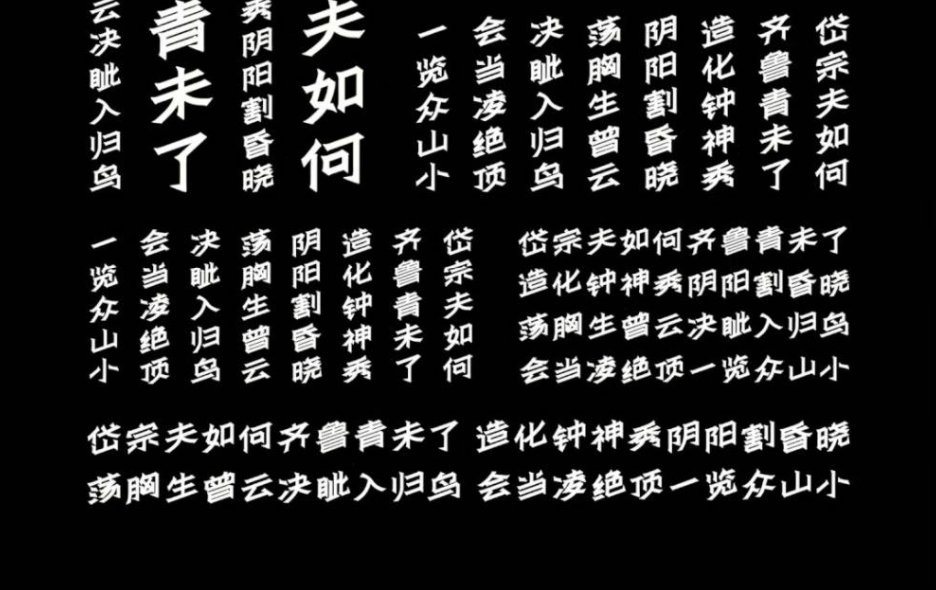 岱宗夫如何
齐鲁青未了
造化钟神秀
阴阳割昏晓
荡胸生曾云
决眦入归鸟
会当凌绝顶
一览众山小
夫如何
秀阴阳割昏晓
青未了
云决眦入归鸟
岱宗夫如何
齐鲁青未了
造化钟神秀
阴阳割昏晓
荡胸生曾云
决眦入归鸟
会当凌绝顶
一览众山小
岱宗夫如何齐鲁青未了
造化钟神秀阴阳割昏晓
荡胸生曾云决眦入归鸟
会当凌绝顶一览众山小
岱宗夫如何齐鲁青未了 造化钟神秀阴阳割昏晓
荡胸生曾云决眦入归鸟 会当凌绝顶一览众山小